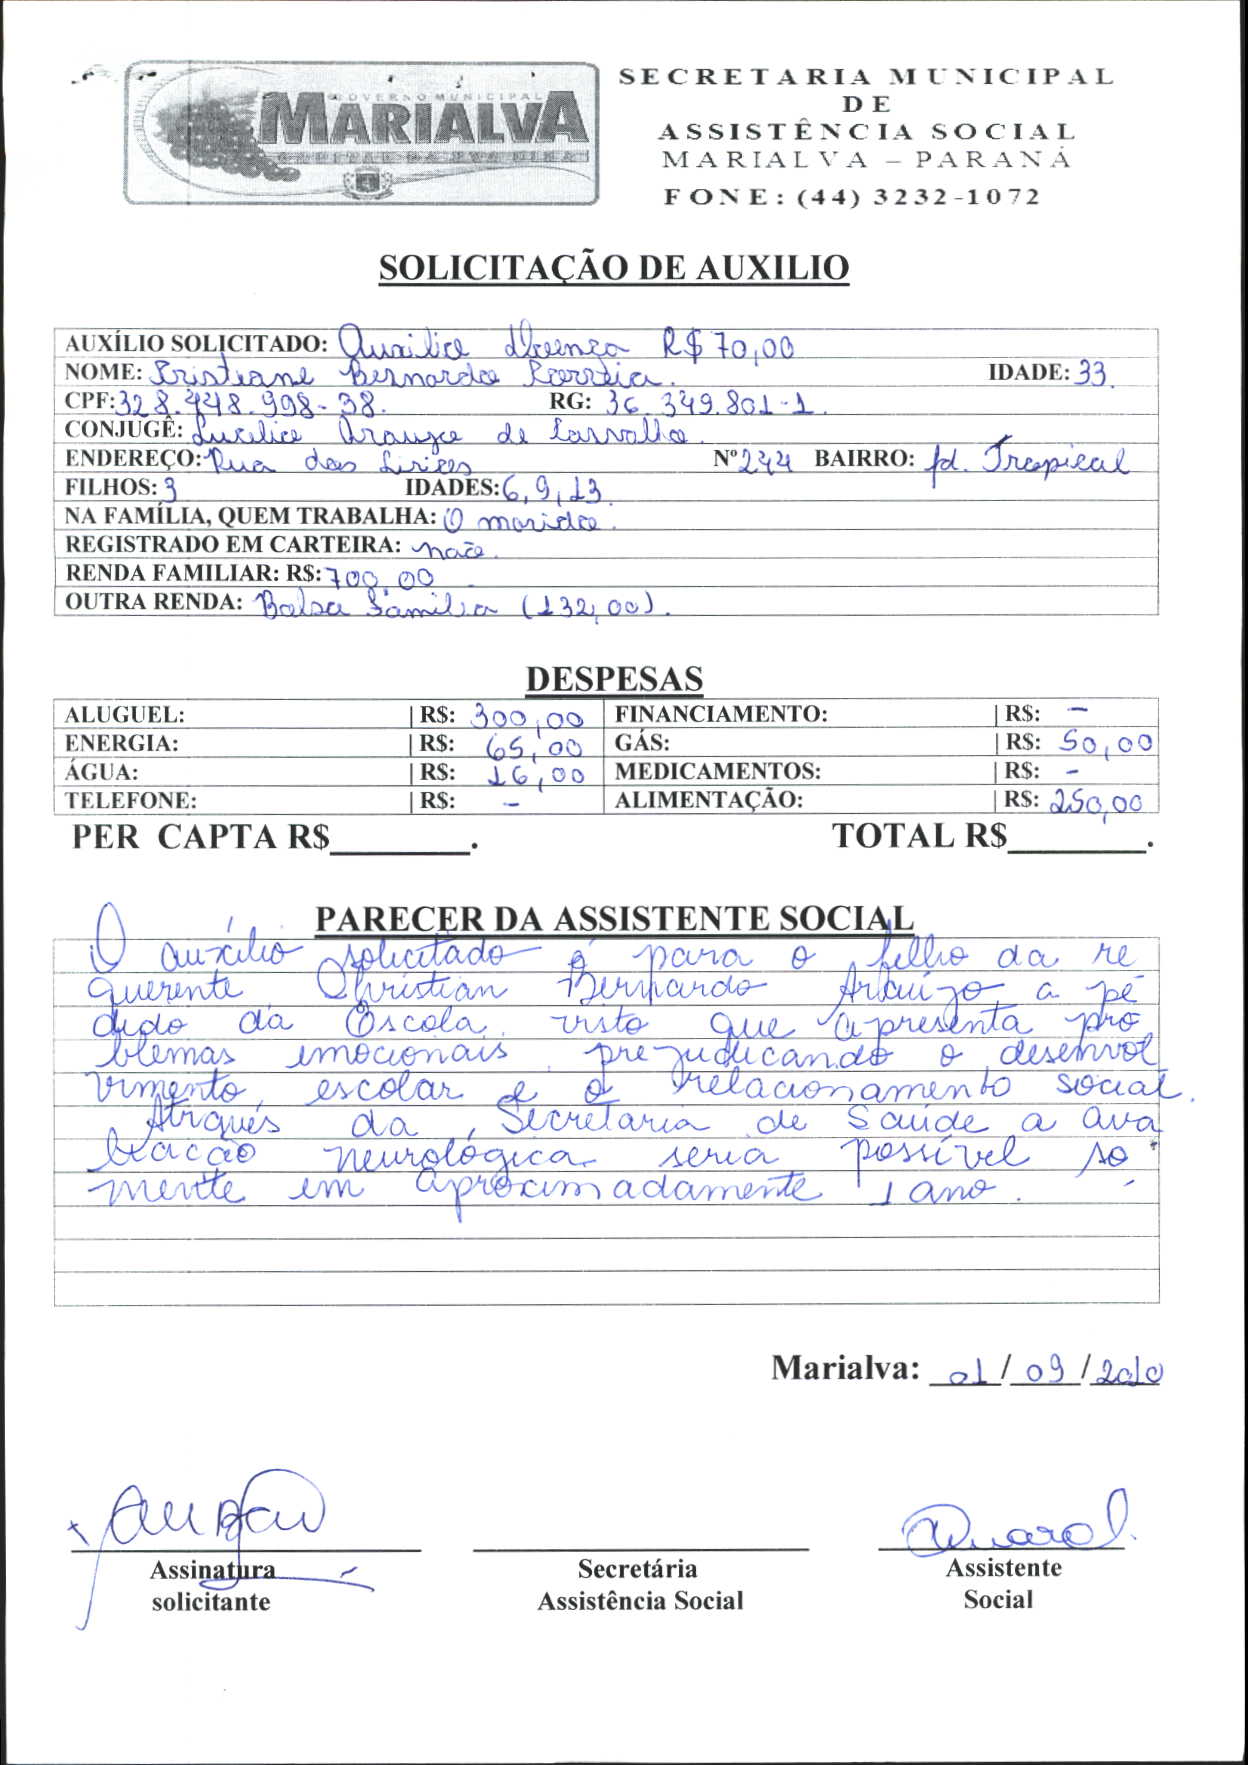 GOVERNO MUNICIPAL
MARIALVA
CAPITAL DA UVA FINA
SECRETARIA MUNICIPAL
DE
ASSISTÊNCIA SOCIAL
MARIALVA – PARANÁ
FONE: (44) 3232-1072
SOLICITAÇÃO DE AUXILIO
AUXÍLIO SOLICITADO: Auxilio doença R$ 70,00
NOME: Cristiane Bernardo Correia. IDADE: 33.
CPF: 328.448.998-38. RG: 36.349.801-1.
CONJUGÊ: Araujo de Carvalho.
ENDEREÇO: Rua dos Lirios Nº 244 BAIRRO: Jd. Tropical
FILHOS: 3 IDADES: 6, 9, 13.
NA FAMÍLIA, QUEM TRABALHA: O marido.
REGISTRADO EM CARTEIRA: não.
RENDA FAMILIAR: R$: 700,00
OUTRA RENDA: Bolsa Família (132,00).
DESPESAS
ALUGUEL: | R$: 300,00 FINANCIAMENTO: | R$: -
ENERGIA: | R$: 65,00 GÁS: | R$: 50,00
ÁGUA: | R$: 16,00 MEDICAMENTOS: | R$: -
TELEFONE: | R$: - ALIMENTAÇÃO: | R$: 250,00
PER CAPTA R$________. TOTAL R$________.
PARECER DA ASSISTENTE SOCIAL
O auxílio solicitado é para o filho da re
querente, Christian Bernardo Araújo, a pe
dido da Escola, visto que apresenta pro
blemas emocionais prejudicando o desenvol
vimento escolar e o relacionamento social.
Através da Secretaria de Saúde a ava
liacão neurológica seria possível so
mente em aproximadamente 1 ano.
Marialva: 01/09/2010
Assinatura Secretária Assistente
solicitante Assistência Social Social